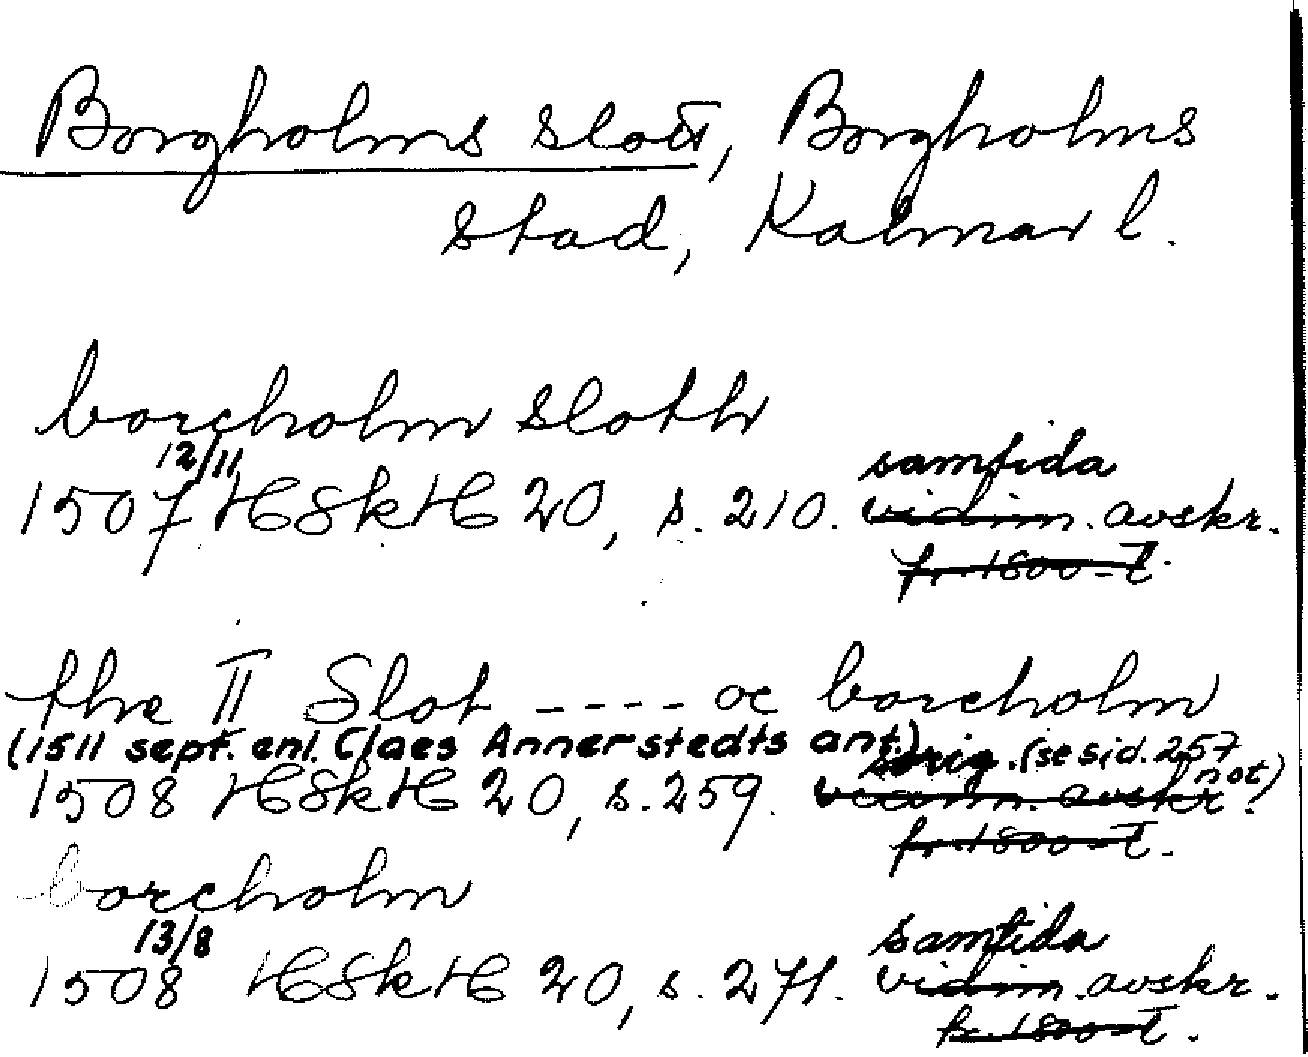 Borgholms slott, Borgholms
stad, Kalmar l.
borcholm sloth
12/11
samtida
1507 HSkH 20, s. 210. vidim. avskr.
fr. 1800-t.
the II Slot ---- oc borcholm
(1511 sept. enl. Claes Annerstedts ant.) orig. (se sid. 257
not)
1508 HSkH 20, s. 259. vidim. avskr.
fr. 1800-t.
borcholm
13/8
samtida
1508 HSkH 20, s. 271. vidim. avskr.
fr. 1800-t.